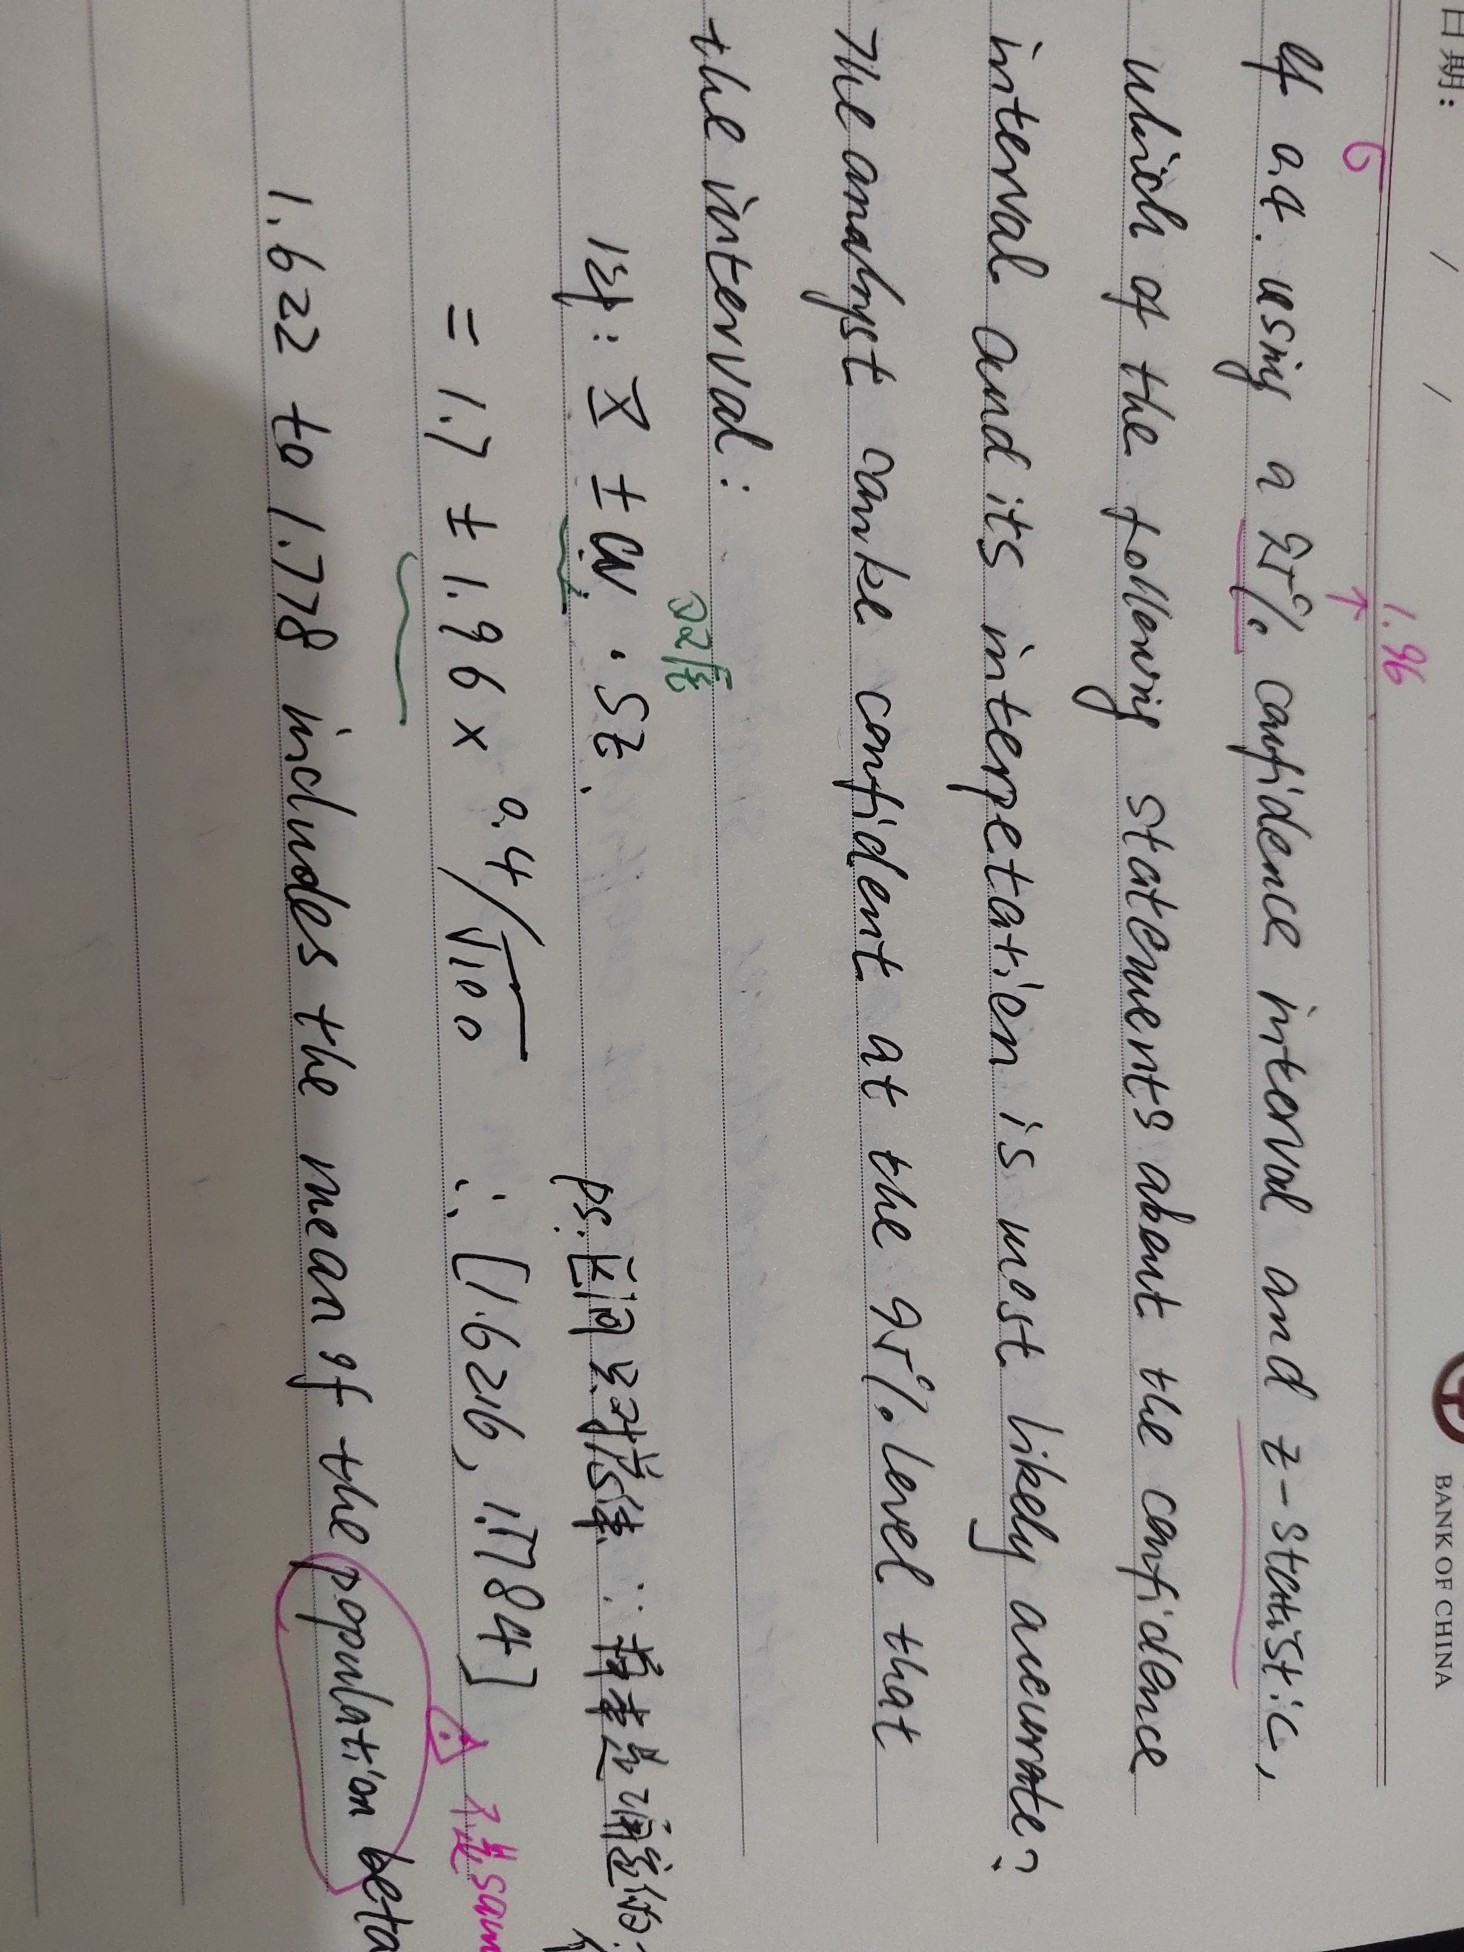 日期: / /
BANK OF CHINA
σ
1.96
of 0.4. using a 95% confidence interval and z-statistic,
which of the following statements about the confidence
interval and its interpetation is most likely accurate?
The analyst can be confident at the 95% level that
the interval:
22倍
译: X̄ ± W · SE.
ps.区间 是对总体. ∵ 样本是确定的.
= 1.7 ± 1.96 × 0.4/√100 ∴ [1.6216, 1.7784]
不是sam
1.622 to 1.778 includes the mean of the population beta